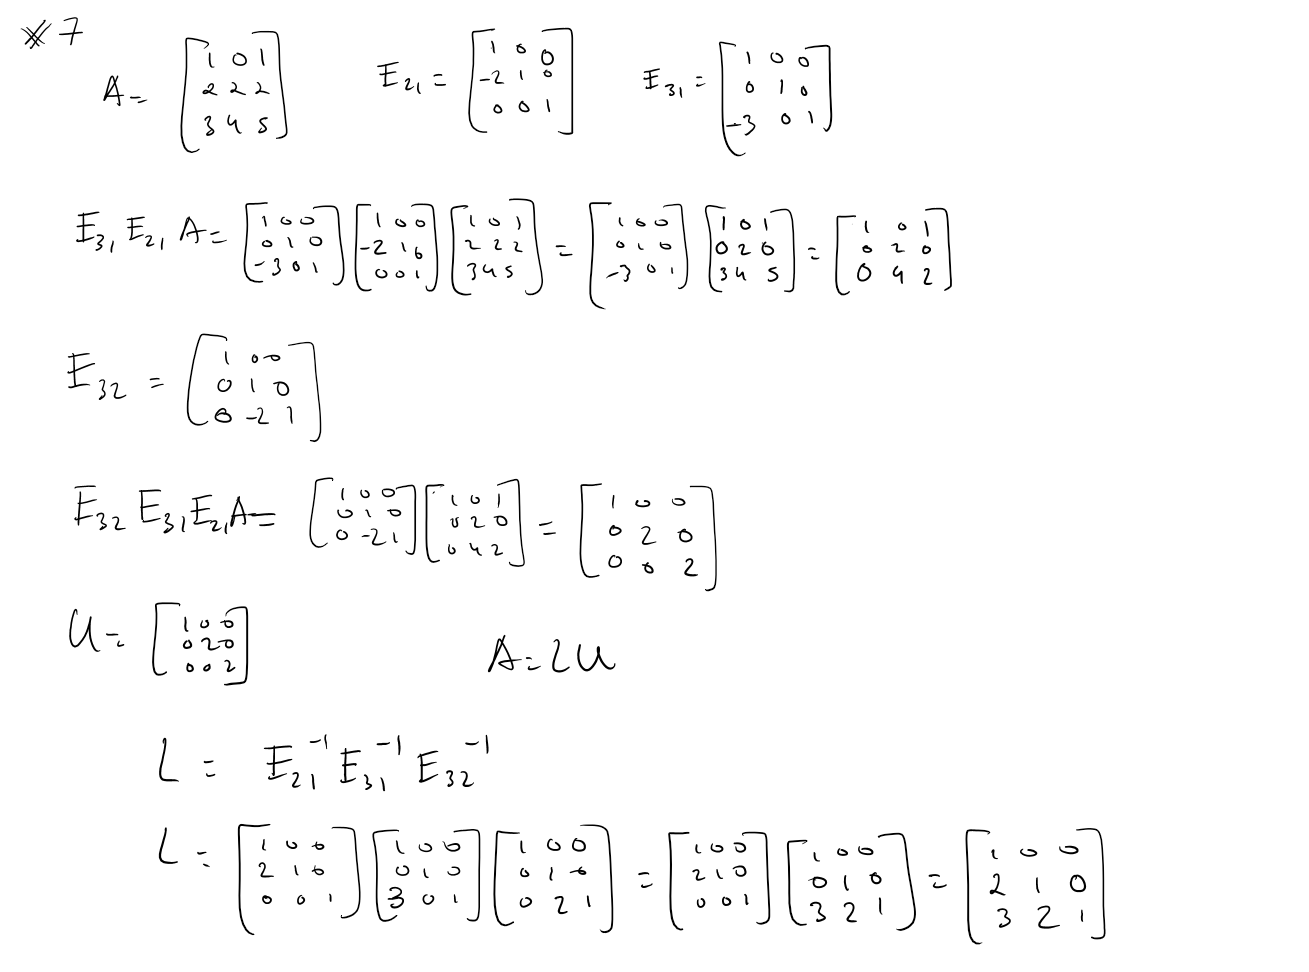 ※7
A = [1 0 1; 2 2 2; 3 4 5] E₂₁ = [1 0 0; -2 1 0; 0 0 1] E₃₁ = [1 0 0; 0 1 0; -3 0 1]
E₃₁ E₂₁ A = [1 0 0; 0 1 0; -3 0 1] [1 0 0; -2 1 0; 0 0 1] [1 0 1; 2 2 2; 3 4 5] = [1 0 0; 0 1 0; -3 0 1] [1 0 1; 0 2 0; 3 4 5] = [1 0 1; 0 2 0; 0 4 2]
E₃₂ = [1 0 0; 0 1 0; 0 -2 1]
E₃₂ E₃₁ E₂₁ A = [1 0 0; 0 1 0; 0 -2 1] [1 0 1; 0 2 0; 0 4 2] = [1 0 0; 0 2 0; 0 0 2]
U = [1 0 0; 0 2 0; 0 0 2] A = LU
L = E₂₁⁻¹ E₃₁⁻¹ E₃₂⁻¹
L = [1 0 0; 2 1 0; 0 0 1] [1 0 0; 0 1 0; 3 0 1] [1 0 0; 0 1 0; 0 2 1] = [1 0 0; 2 1 0; 0 0 1] [1 0 0; 0 1 0; 3 2 1] = [1 0 0; 2 1 0; 3 2 1]